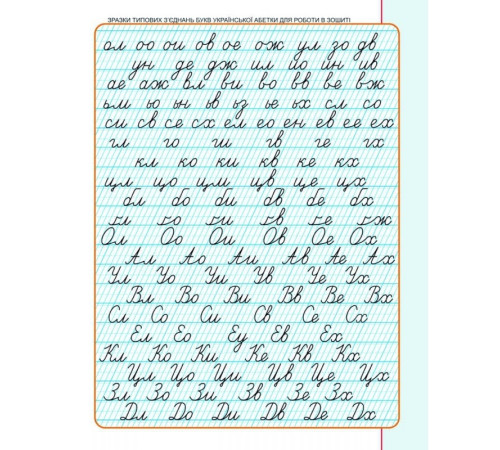 ЗРАЗКИ ТИПОВИХ З'ЄДНАНЬ БУКВ УКРАЇНСЬКОЇ АБЕТКИ ДЛЯ РОБОТИ В ЗОШИТІ
ол оо ои ов ое ож ул зо дв
ун де дж ил йо йн ив
ае аж вл ви во вв ве вж
ьм ьо ьн ьв ьз ье ьх сл со
си св се сх ел ео ен ев ее ех
гл го ги гв ге гх
кл ко ки кв ке кх
цл що цм цв це цх
бл бо би бв бе бх
ґл ґо ґи ґв ґе ґж
Ол Оо Ои Ов Ое Ох
Ал Ао Аи Ав Ае Ах
Ул Уо Уи Ув Уе Ух
Вл Во Ви Вв Ве Вх
Сл Со Си Св Се Сх
Ел Ео Еу Ев Ех
Кл Ко Ки Ке Кв Кх
Цл Цо Ци Цв Це Цх
Зл Зо Зи Зв Зе Зх
Дл До Ди Дв Де Дх